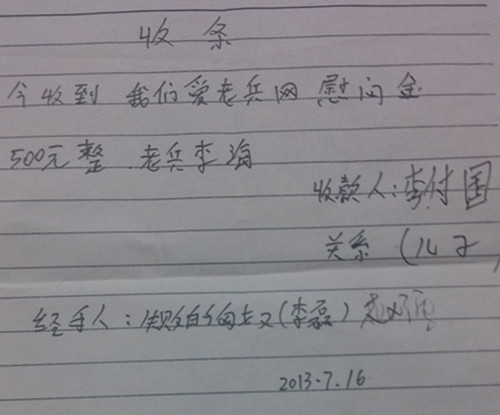 收条
今收到 我们爱老兵网慰问金
500元整.老兵李海
收款人:李付国
关系(儿子
经手人:(李磊)
2013.7.16